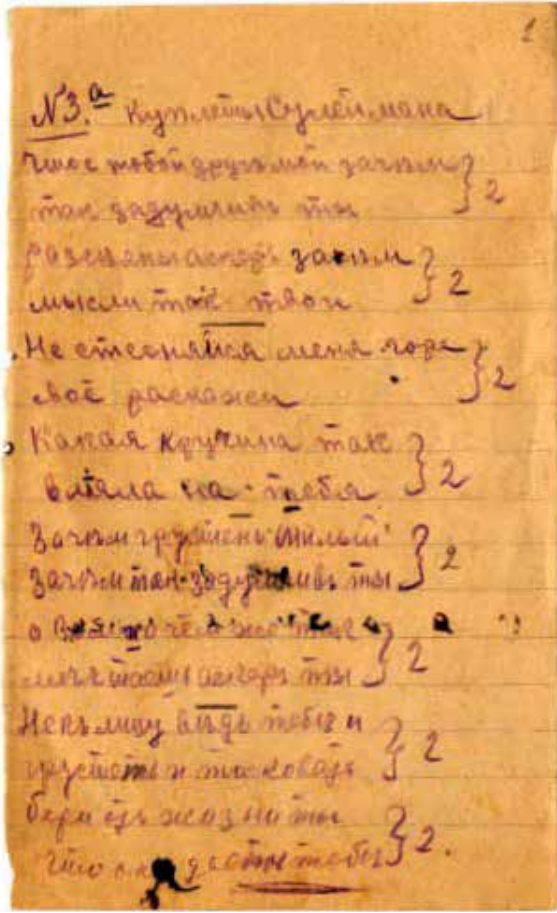 1
№3.а Куплеты Сулеймана
Что с тобой друг мой зачѣм } 2
так задумчивъ ты
Разсѣяны аскеръ зачѣм } 2
мысли так твои
Не стесняйся меня горе } 2
своё раскажи
Какая кручина так } 2
влеяла на тебя
Зачѣм грустенъ милый } 2
Зачѣм так задумчивъ ты
о чём же так } 2
мечтаешь аскеръ ты
Некълицу вѣдь тебѣ и } 2
грустить и тосковать
бери отъ жизни ты } 2.
Что она тебѣ